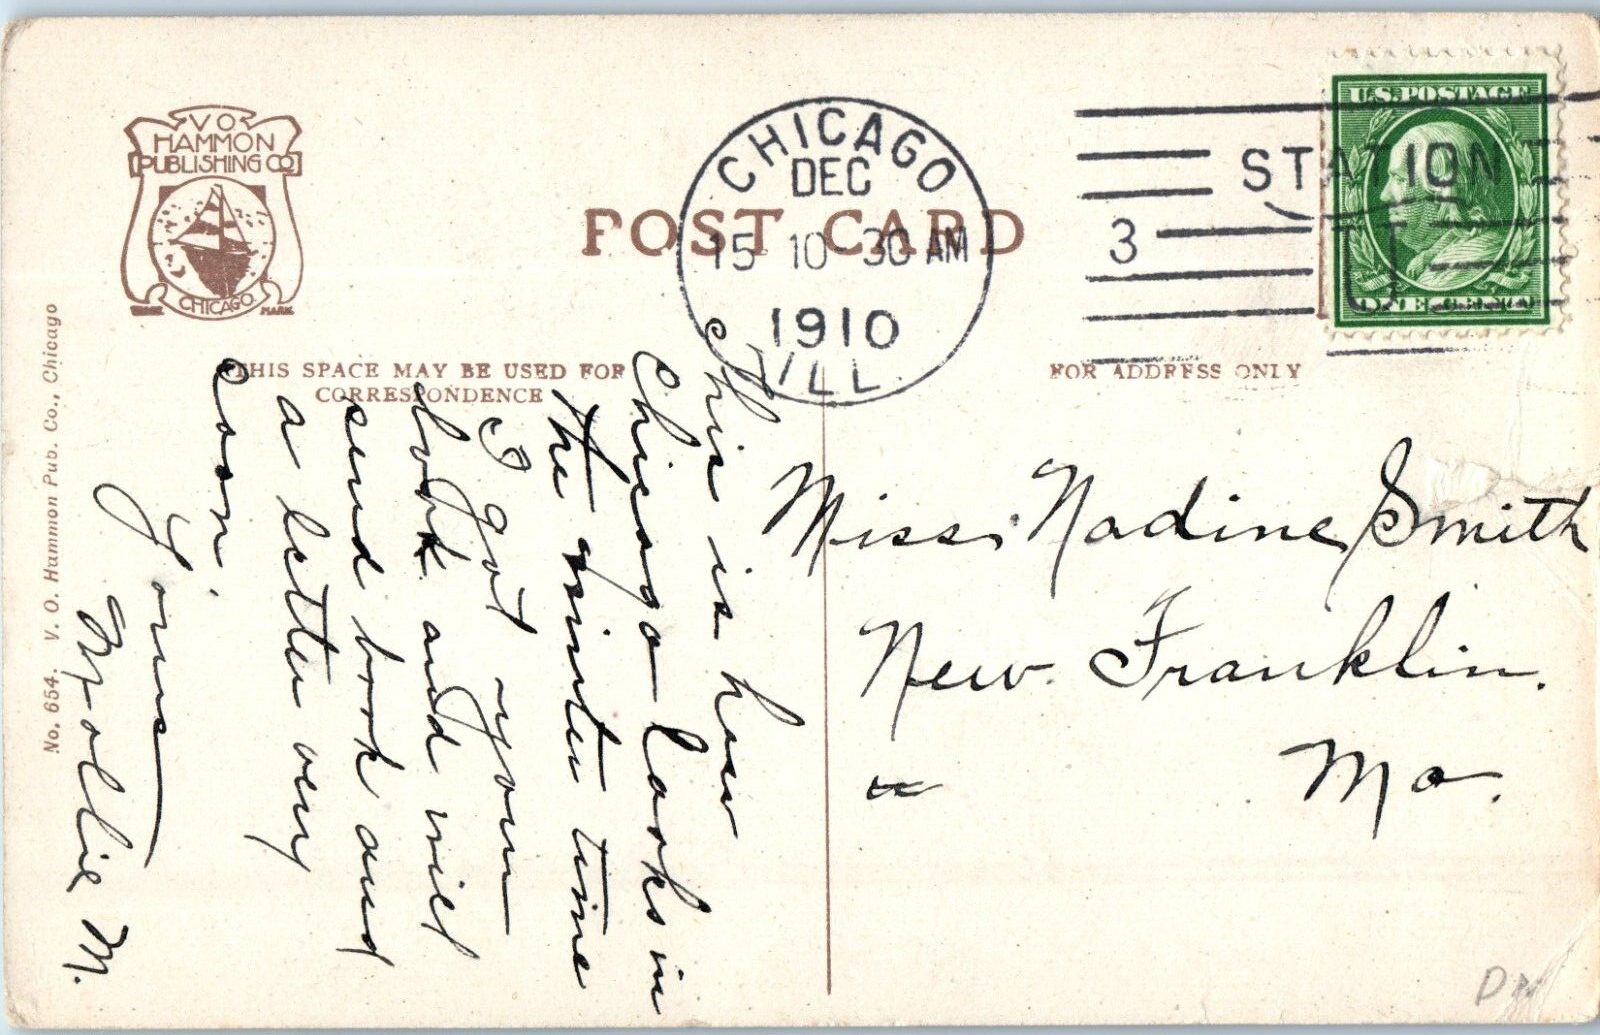 V O
HAMMON
PUBLISHING CO
CHICAGO
TRADE MARK
POST CARD
CHICAGO
DEC
15 10 30 AM
1910
ILL.
STATION
3
U
U.S. POSTAGE
ONE CENT
THIS SPACE MAY BE USED FOR
CORRESPONDENCE
FOR ADDRESS ONLY
This is how
Chicago looks in
the winter time
I got your
book and will
send book and
a letter very
soon.
Yours
Mollie M.
Miss. Nadine Smith
New. Franklin.
Mo.
No. 654. V. O. Hammon Pub. Co., Chicago